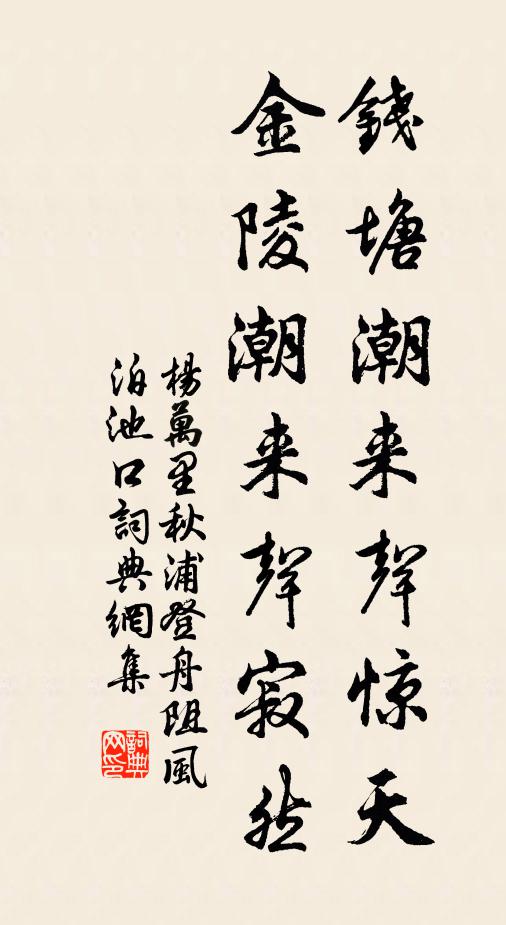 錢塘潮来聲惊天
金陵潮来聲寂然
楊萬里秋浦登舟阻風
泊池口詞典網集
詞典
网印